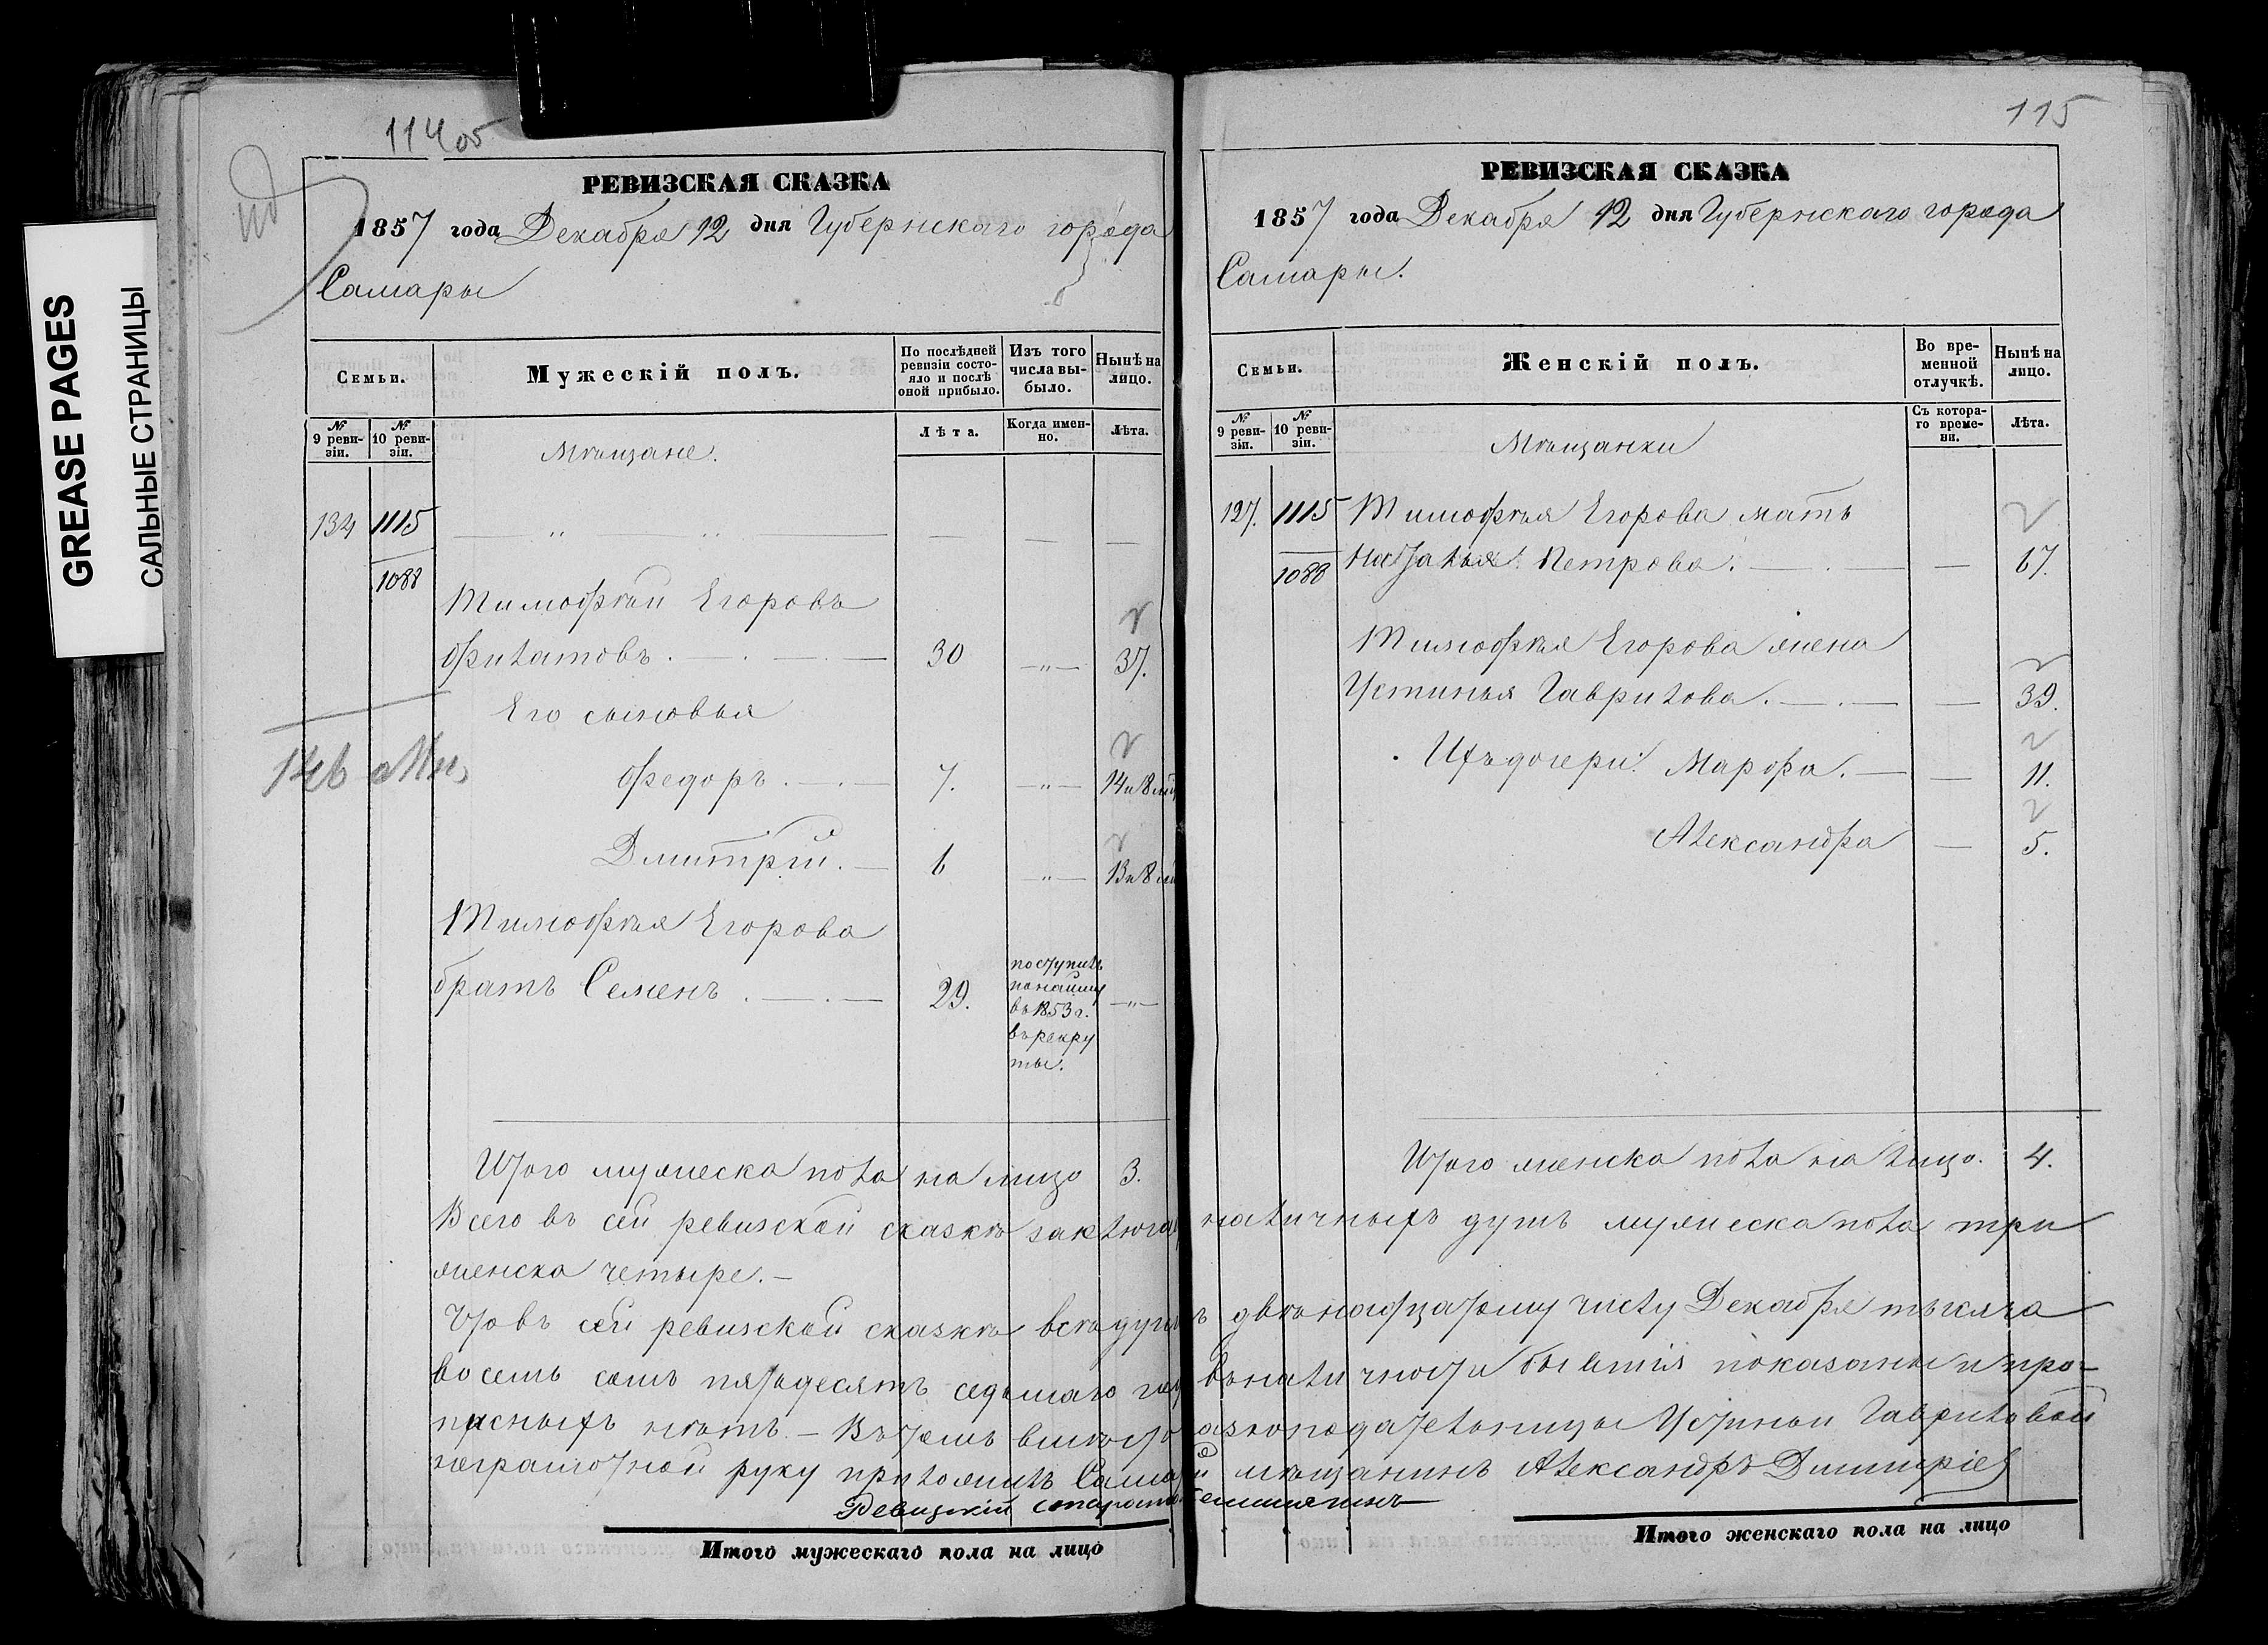 GREASE PAGES
САЛЬНЫЕ СТРАНИЦЫ
114 об
РЕВИЗСКАЯ СКАЗКА
1857 года Декабря 12 дня Губернскаго города
Самары
Семьи.
Мужескій полъ.
По послѣдней ревизіи состояло и послѣ оной прибыло.
Изъ того числа выбыло.
Нынѣ на лицо.
№ 9 ревизіи.
№ 10 ревизіи.
Мѣщане.
Лѣта.
Когда именно.
Лѣта.
134 1115
1088
Тимофѣй Егоровъ
Филатовъ. 30 — " — 37.
Его сыновья
Федоръ. 7. — " — 14 и 8
Дмитрій. 6 — " — 13 и 8
Тимофѣя Егорова
братъ Семенъ. 29. поступилъ
по найму
въ 1853 г.
въ рекру
ты. — " —
Итого мужеска пола на лицо 3.
Всего въ сей ревизской сказкѣ заключая
женска четыре. —
Что въ сей ревизской сказкѣ всѣ души
восемь сотъ пятьдесятъ седьмаго
прописныхъ нѣтъ. — Въ томъ вмѣсто
неграмотной руку приложилъ
Ревизскій староста
Итого мужескаго пола на лицо
115
РЕВИЗСКАЯ СКАЗКА
1857 года Декабря 12 дня Губернскаго города
Самары.
Семьи.
Женскій полъ.
Во временной отлучкѣ.
Нынѣ на лицо.
№ 9 ревизіи.
№ 10 ревизіи.
Мѣщанки
Съ котораго времени.
Лѣта.
127. 1115 Тимофѣя Егорова мать
1088 Наталья Петрова. — 67.
Тимофѣя Егорова жена
Устинья Гаврилова. — 39.
Ихъ дочери: Марфа. — 11.
Александра — 5.
Итого женска пола на лицо. 4.
наличныхъ душъ мужеска пола три
двѣнадцатому числу Декабря тысяча
въ наличности бывшія показаны и про-
Устиньи Гавриловой
мѣщанинъ Александръ Дмитріев
Итого женскаго пола на лицо